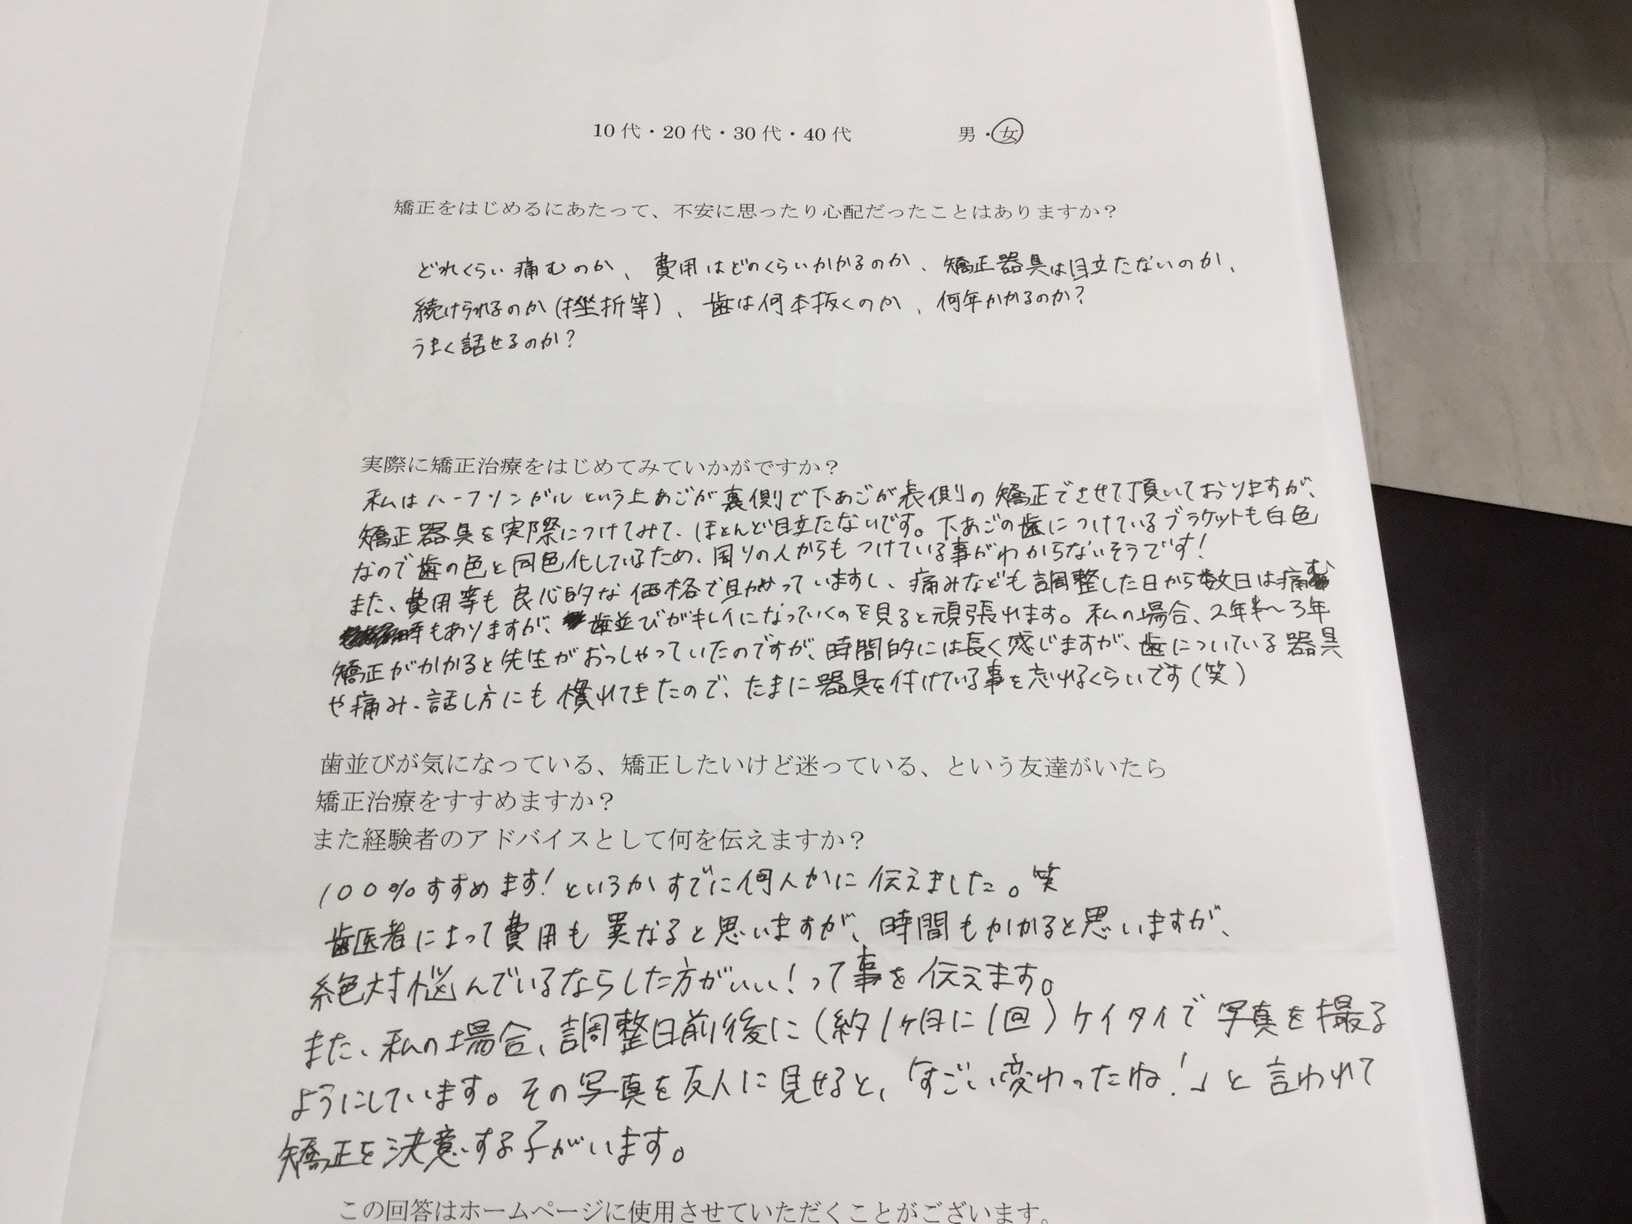 10代・20代・30代・40代 男・女
矯正をはじめるにあたって、不安に思ったり心配だったことはありますか？
どれくらい痛むのか、費用はどのくらいかかるのか、矯正器具は目立たないのか、
続けられるのか(挫折等)、歯は何本抜くのか、何年かかるのか?
うまく話せるのか?
実際に矯正治療をはじめてみていかがですか？
私はハーフリンガルという上あごが裏側で下あごが表側の矯正でさせて頂いておりますが、
矯正器具を実際につけてみて、ほとんど目立たないです。下あごの歯につけているブラケットも白色
なので歯の色と同色化しているため、周りの人からもつけている事がわからないそうです!
また、費用等も良心的な価格で助かっていますし、痛みなども調整した日から数日は痛む
時もありますが、歯並びがキレイになっていくのを見ると頑張れます。私の場合、2年半～3年
矯正がかかると先生がおっしゃっていたのですが、時間的には長く感じますが、歯についている器具
や痛み、話し方にも慣れてきたので、たまに器具を付けている事を忘れるくらいです(笑)
歯並びが気になっている、矯正したいけど迷っている、という友達がいたら
矯正治療をすすめますか？
また経験者のアドバイスとして何を伝えますか？
100%すすめます!というかすでに何人かに伝えました。笑
歯医者によって費用も異なると思いますが、時間もかかると思いますが、
絶対悩んでいるならした方がいい!って事を伝えます。
また、私の場合、調整日前後に(約1ヶ月に1回)ケイタイで写真を撮る
ようにしています。その写真を友人に見せると、「すごい変わったね!」と言われて
矯正を決意する子がいます。
この回答はホームページに使用させていただくことがございます。